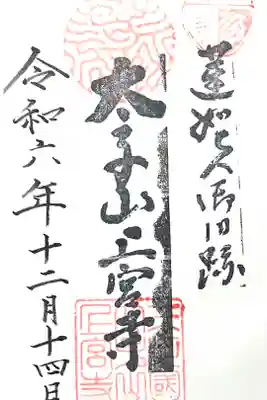 蓮如上人御旧跡
太子山上宮寺
令和六年十二月十四日